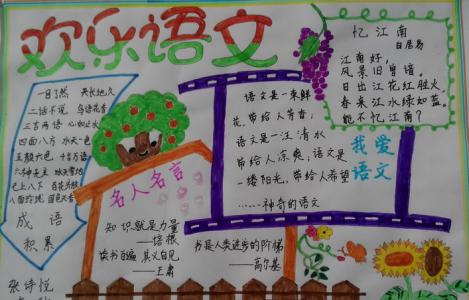 欢乐语文
一目了然 天长地久
二话不说 鸟语花香
三言两语 心如止水
四面八方 水天一色
五颜六色 十全十美
七上八下 百花齐放
成语
积累
张诗悦
名人名言
知识就是力量
——培根
读书百遍 其义自见
——王肃
语文是一束鲜
花,带给人芳香,
语文是一汪清水
带给人凉爽,语文是
一缕阳光,带给人希望
……神奇的语文
书是人类进步的阶梯
——高尔基
忆江南
白居易
江南好,
风景旧曾谙。
日出江花红胜火
春来江水绿如蓝,
能不忆江南?
我爱
语文